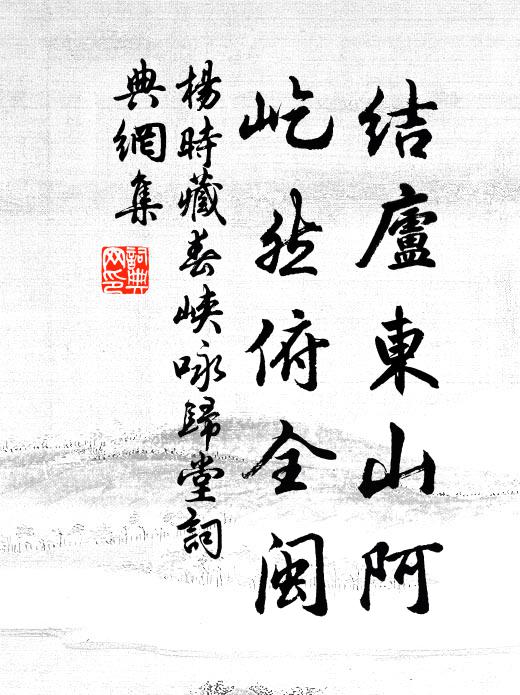 結廬東山阿
屹然俯全閩
楊時藏春峽咏歸堂詞
典網集
詞典網印